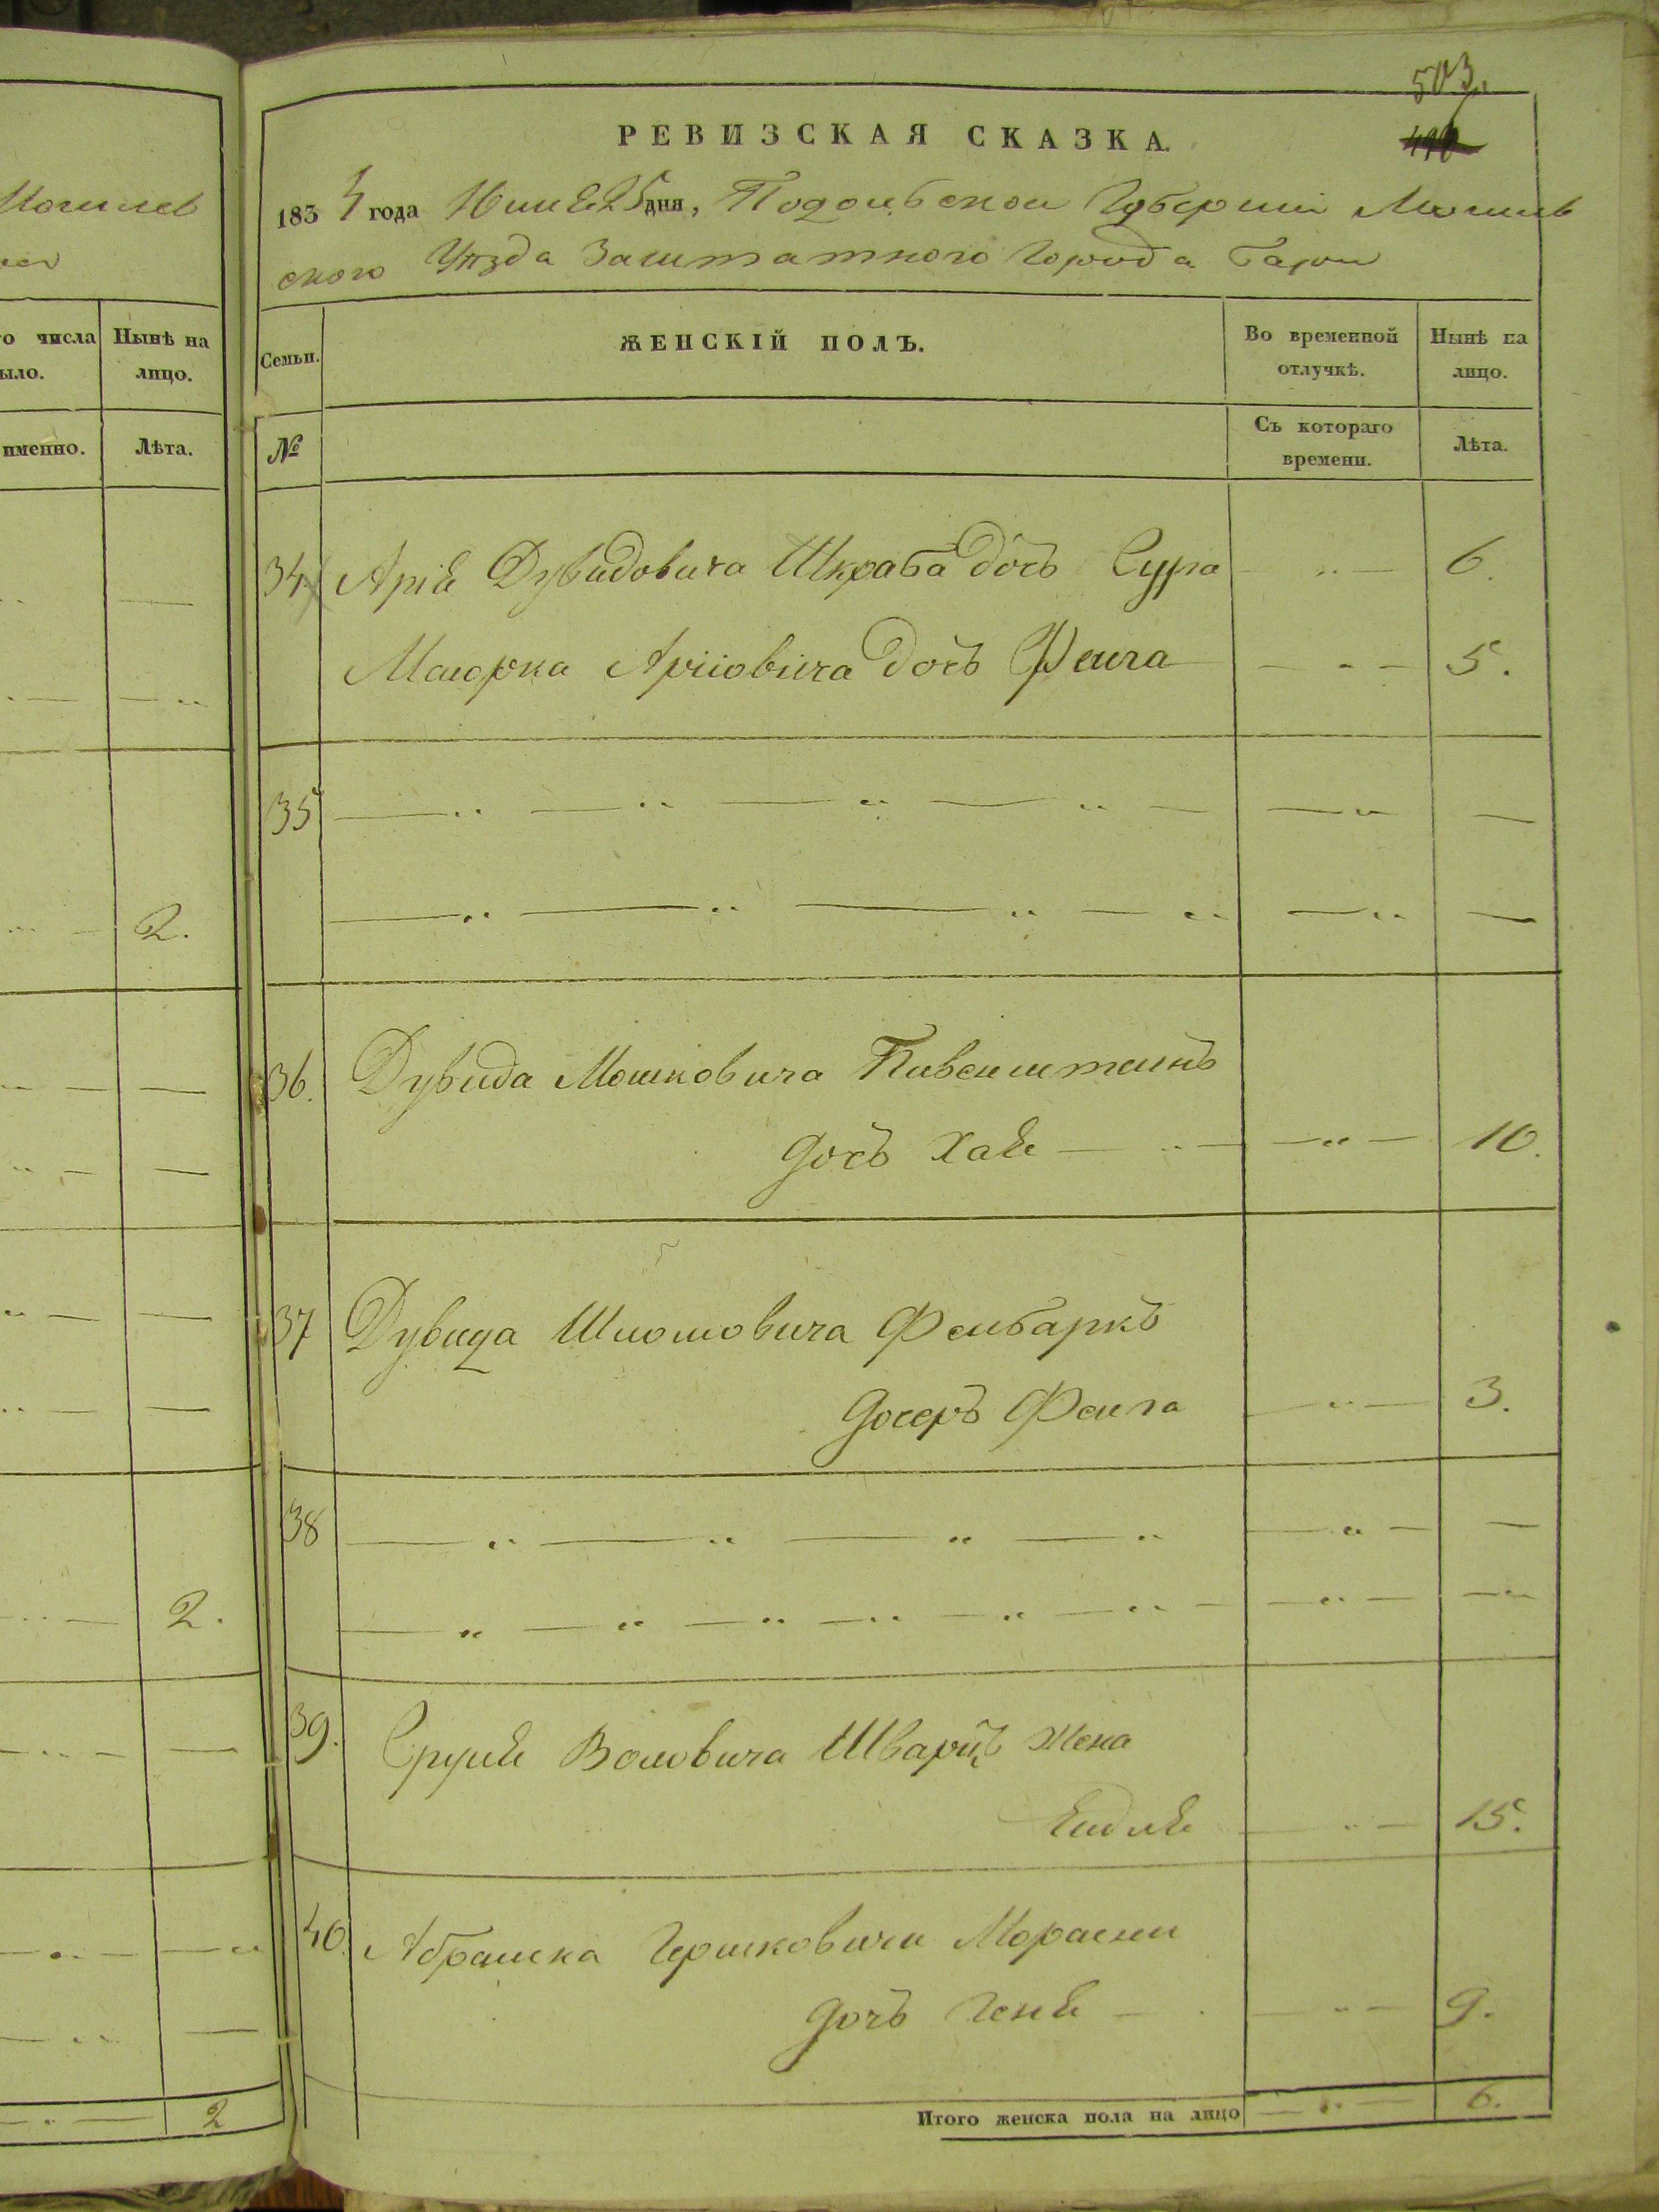 Могилев
о числа
Нынѣ на
ыло.
лицо.
именно.
Лѣта.
2.
2.
2
503.
РЕВИЗСКАЯ СКАЗКА.
1834 года Июня 25 дня, Подольской Губерніи Могилев
ского Уѣзда Заштатного Города Бара
Семьи.
ЖЕНСКІЙ ПОЛЪ.
Во временной отлучкѣ.
Нынѣ на лицо.
№
Съ котораго времени.
Лѣта.
34 Аріе Дувидовича Шкраба дочь Сура 6.
Маіорка Аріиовича дочь Феига 5.
35
36. Дувида Мошковича
дочь Хае 10.
37 Дувида Шломовича Фельбаркъ
дочерь Феига 3.
38
39. Сруля Воловича Шварцъ жена
15.
40. Абрамка Гершковича
дочь Гене 9.
Итого женска пола на лицо 6.